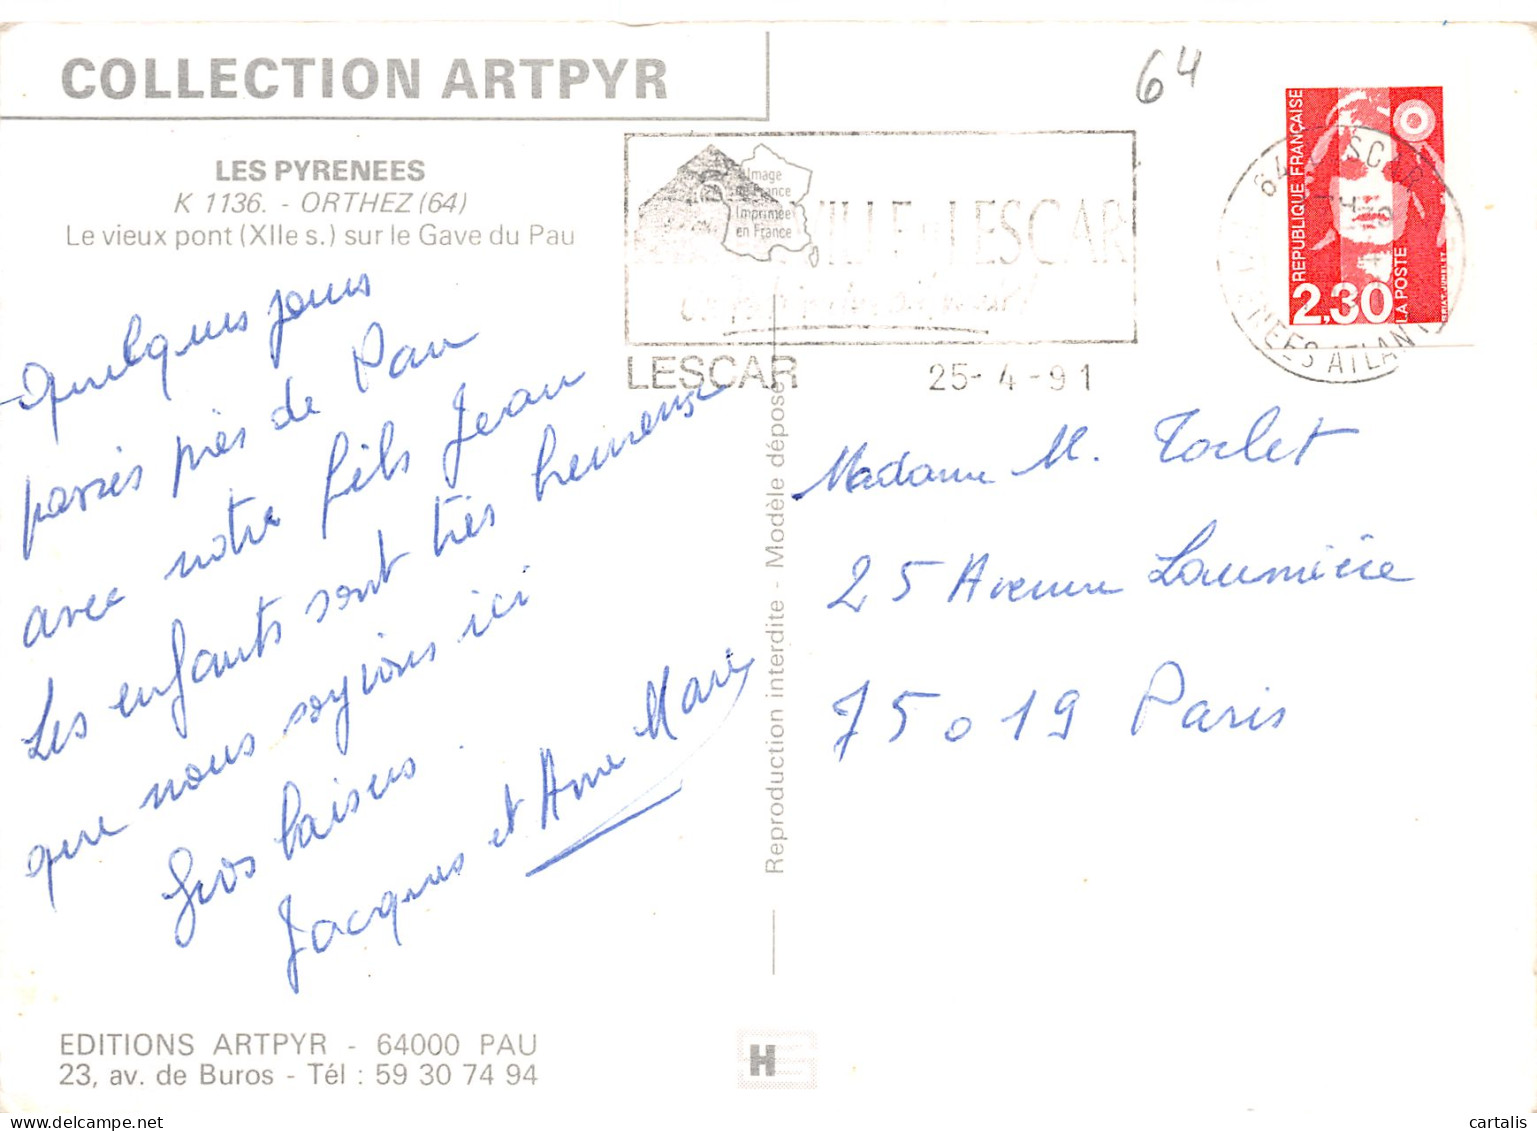 COLLECTION ARTPYR
64
LES PYRENEES
K 1136. - ORTHEZ (64)
Le vieux pont (XIIe s.) sur le Gave du Pau
Image
de France
Imprimée
en France
VILLE LESCAR
LESCAR
25- 4 -91
REPUBLIQUE FRANÇAISE
2,30
LA POSTE
64 LESCAR
PYRENEES ATLANT
Quelques jours
passés près de Pau
avec notre fils Jean
Les enfants sont très heureux
que nous soyions ici
Gros baisers.
Jacques et Anne Marie
Reproduction interdite - Modèle déposé
Madame M. Torlet
25 Avenue Laumière
75019 Paris
EDITIONS ARTPYR - 64000 PAU
23, av. de Buros - Tél : 59 30 74 94
H
cartalis